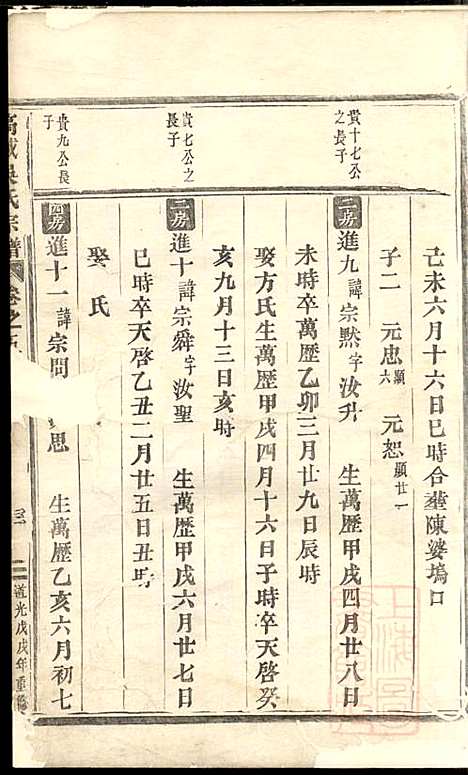 己未六月十六日巳時合𡒉陳婆塢口
子二　元忠顯六　元恕顯廿一
貴十七公之長子
二房進九諱宗默字汝升　生萬歷甲戌四月廿八日
未時卒萬歷乙卯三月廿九日辰時
娶方氏生萬歷甲戌四月十六日子時卒天啓癸
亥九月十三日亥時
貴七公之長子
二房進十諱宗舜字汝聖　生萬歷甲戌六月廿七日
巳時卒天啓乙丑二月廿五日丑時
娶氏
貴九公長子
四房進十一諱宗問　思　生萬歷乙亥六月初七
吳氏宗譜　卷之　三　道光戊戌年重
上海圖